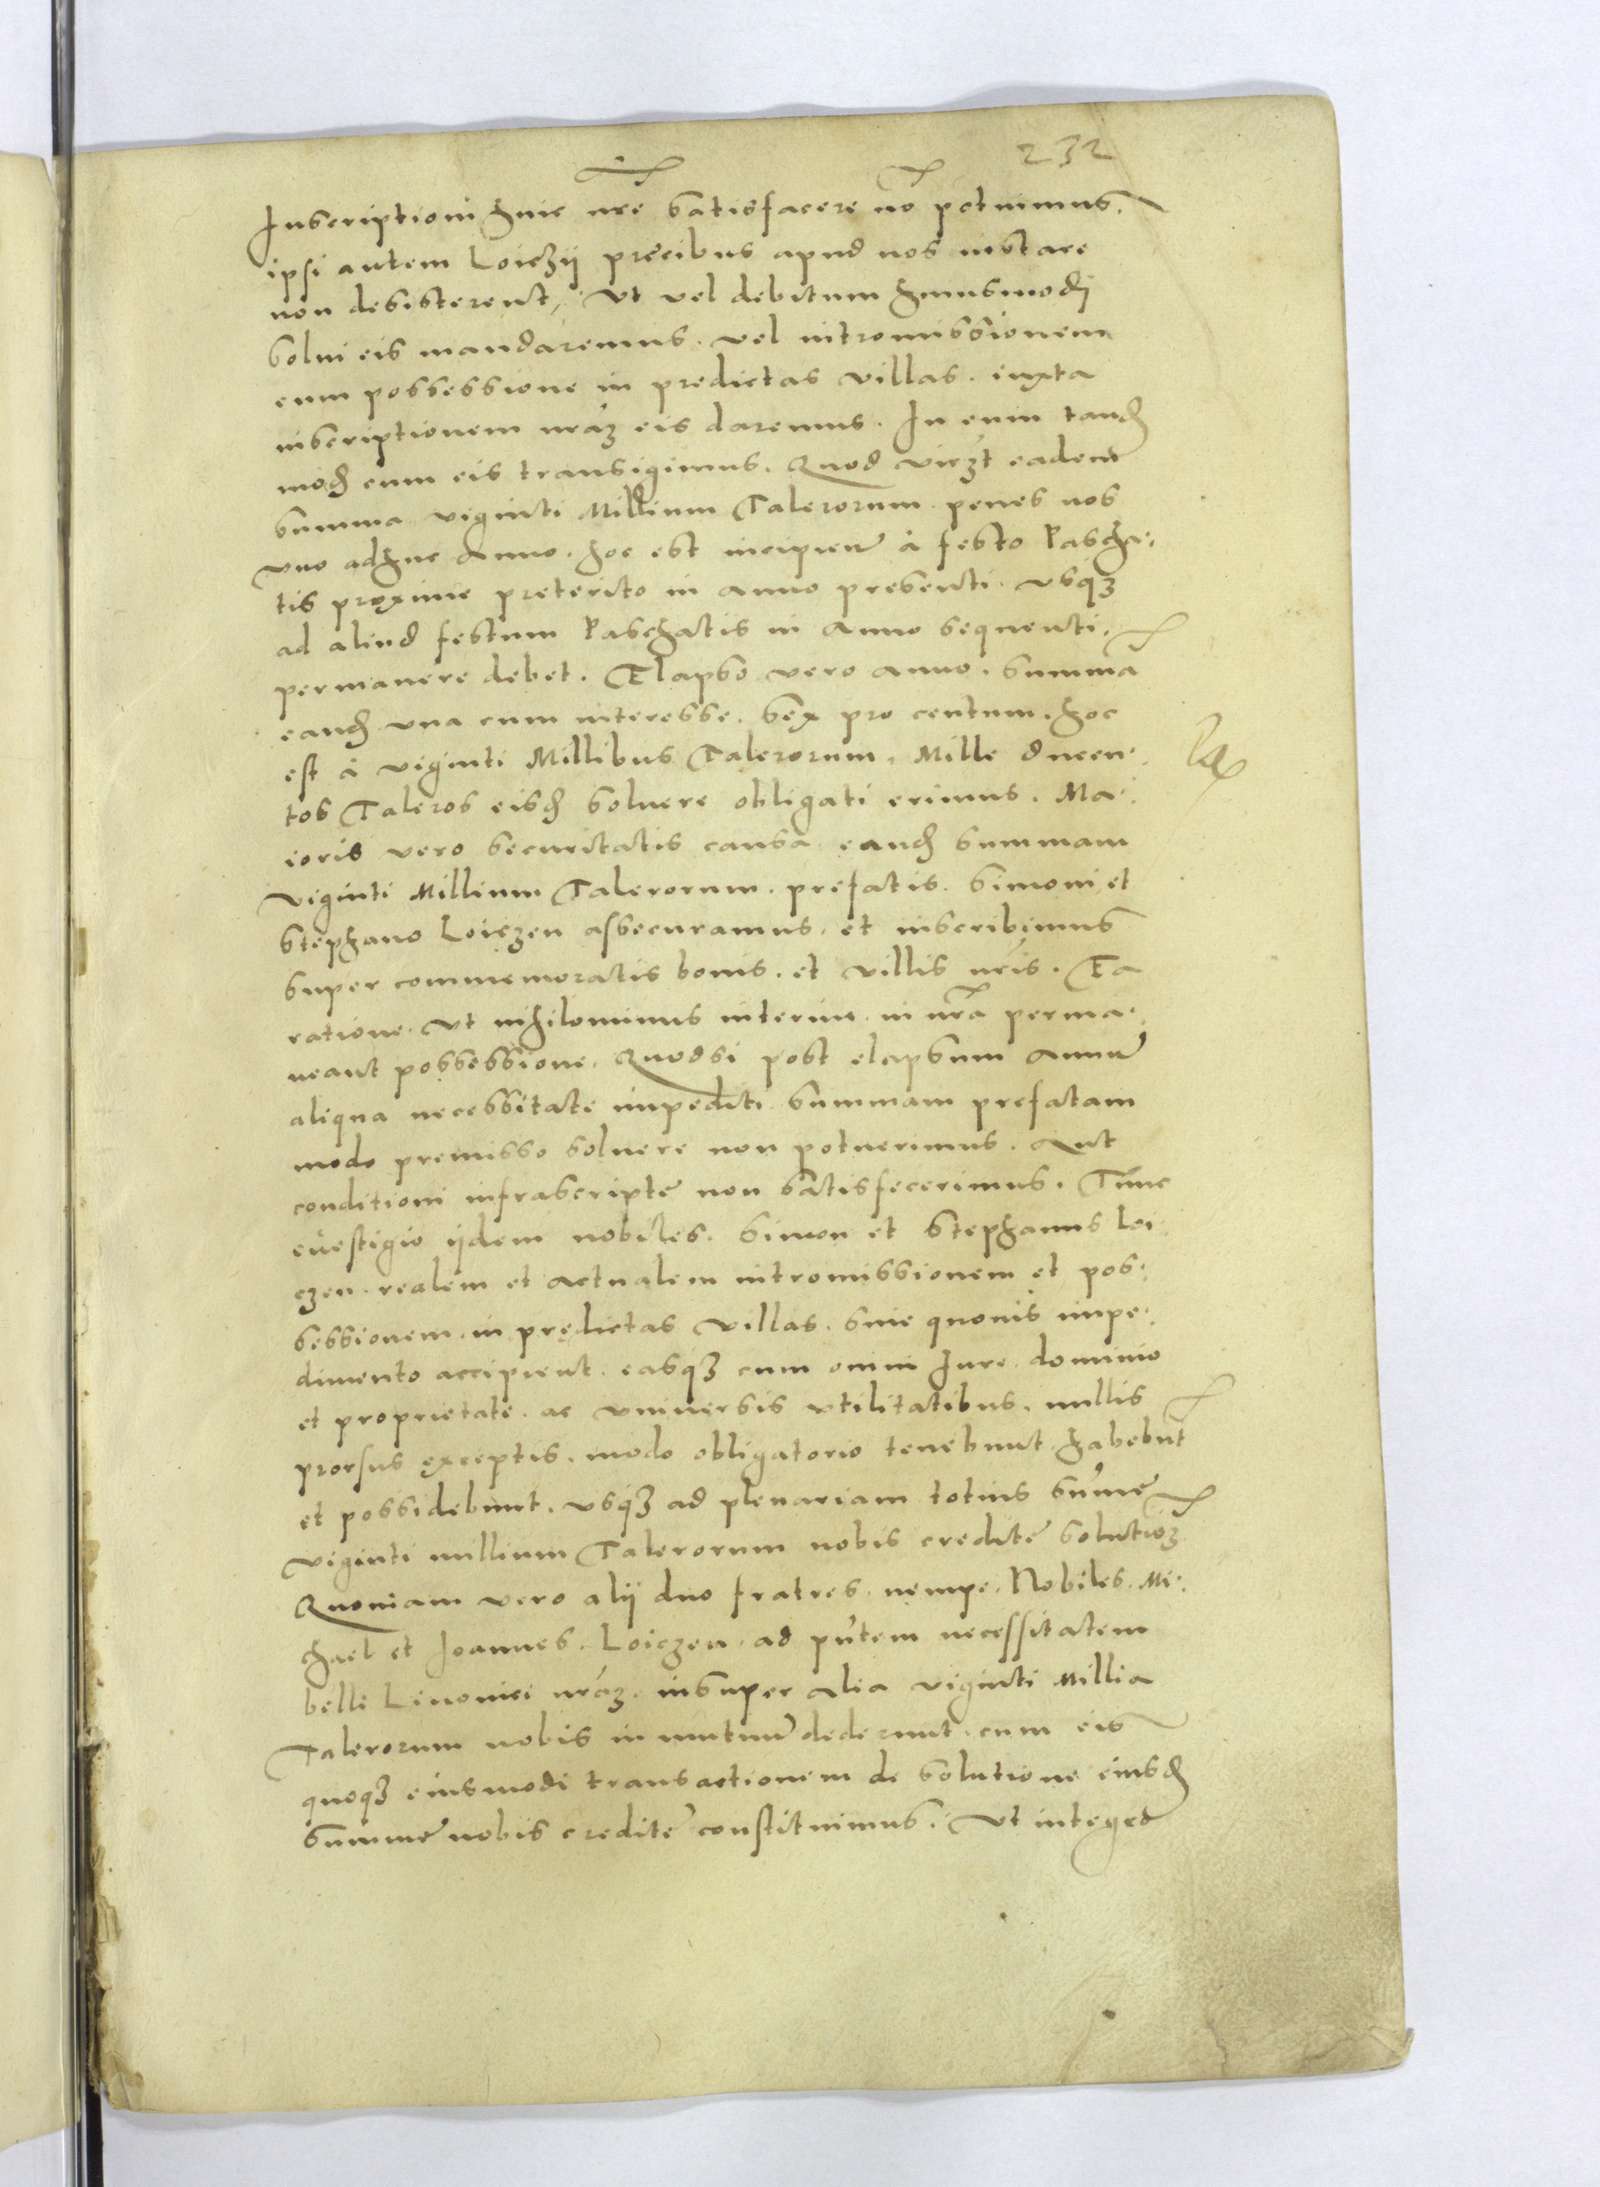 232
Inscriptioni huic nr̃e satisfacere nõ potuimus.
ipsi autem Loiczij precibus apud nos instare
non desisterent, Ut vel debitum huiusmodi
solui eis mandaremus. vel intromissionem
cum possessione in predictas villas. iuxta
inscriptionem nr̃aʒ eis daremus. In eum tandẽ
modũ cum eis transigimus. Quod vicʒt eadem
summa viginti Millium Talerorum penes nos
vno adhuc Anno. hoc est incipien̄ à festo Pascha-
tis proxime preterito in anno presenti. vsqʒ
ad aliud festum Paschatis in Anno sequenti.
permanere debet. Elapso vero anno. summã
eandẽ vna cum interesse. sex pro centum. hoc
est à viginti Millibus Talerorum. Mille ducen-
tos Taleros eisdẽ soluere obligati erimus. Ma-
ioris vero securitatis causa eandẽ summam
viginti Millium Talerorum. prefatis. Simoni et
Stephano Loiczen assecuramus. et inscribimus
super commemoratis bonis. et villis nr̃is. Ea
ratione. Ut nihilominus interim in nr̃a perma-
neant possessione. Quodsi post elapsum Annũ
aliqua necessitate impediti summam prefatam
modo premisso soluere non potuerimus. Aut
conditioni infrascripte non satisfecerimus. Tunc
euestigio ijdem nobiles. Simon et Stephanus Loi-
czen. realem et actualem intromissionem et pos-
sessionem in predictas villas. sine quouis impe-
dimento accipient. easqʒ cum omni Iure dominio
et proprietate. ac vniuersis vtilitatibus. nullis
prorsus exceptis. modo obligatorio tenebunt habebũt
et possidebunt. vsqʒ ad plenariam totius sum̃e
viginti millium Talerorum nobis credite solutioʒ
Quoniam vero alij duo fratres. nempe. Nobiles. Mi-
chael et Ioannes. Loiczen. ad pñtem necessitatem
belli Liuonici nr̃aʒ. insuper alia viginti Millia
Talerorum nobis in mutuũ dederunt. cum eis
quoqʒ eiusmodi transactionem de solutione eiusdẽ
summe nobis credite constituimus. Ut integer